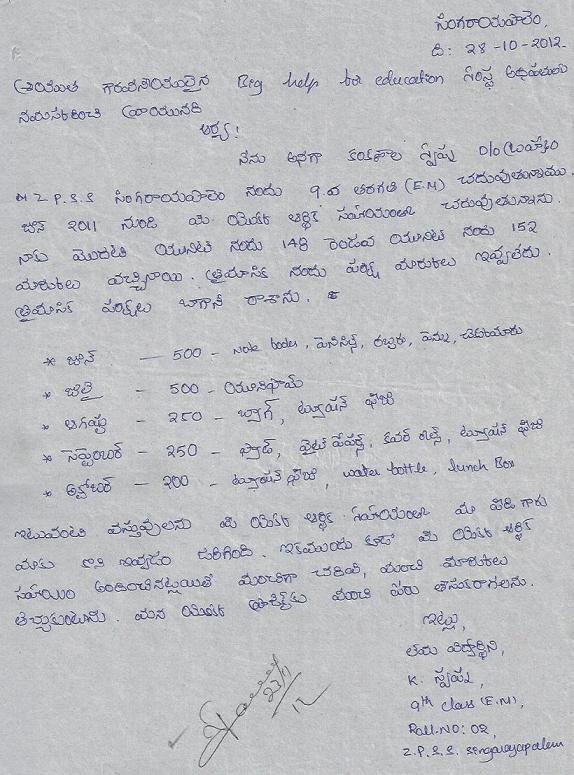 సింగరాయపాలెం,
ది: 28-10-2012.
గౌరవనీయులైన Big help for education సంస్థ
నమస్కరించి వ్రాయునది
ఆర్యా!
నేను అనగా స్వప్న D/O బ్రహ్మం
Z.P.S.S సింగరాయపాలెం నందు 9.వ తరగతి (E.M) చదువుతున్నాము.
జూన్ 2011 నుండి మీ యొక్క ఆర్థిక సహాయంతో చదువుతున్నాను.
నాకు మొదటి యూనిట్ నందు 148 రెండవ యూనిట్ నందు 152
మార్కులు వచ్చినాయి. త్రైమాసిక నందు పరీక్ష మార్కులు ఇవ్వలేదు.
త్రైమాసిక పరీక్షలు బాగానే రాశాను.
* జూన్ — 500 - Note books, పెన్సిల్స్, రబ్బరు, పెన్ను,
* జులై – 500 - యూనిఫామ్
* ఆగష్టు – 250 - బ్యాగ్, ట్యూషన్ ఫీజు
* సెప్టెంబర్ – 250 - ప్యాడ్, వైట్ పేపర్స్, కవర్ ట్యూషన్ ఫీజు
* అక్టోబర్ – 200 - ట్యూషన్ ఫీజు, water bottle, lunch Box
ఇటువంటి వస్తువులను మీ యొక్క ఆర్థిక సహాయంతో మా గారు
మాకు కొని ఇవ్వడం జరిగింది. ఇకముందు కూడా మీ యొక్క ఆర్థిక
సహాయం అందించినట్లయితే మంచిగా చదివి, మంచి మార్కులు
తెచ్చుకుంటాను. మన యొక్క మంచి పేరు తీసుకురాగలను.
ఇట్లు,
తమ విద్యార్థిని,
K. స్వప్న,
9th class (E.M),
Roll.NO: 02,
Z.P.S.S. Singarayapalem